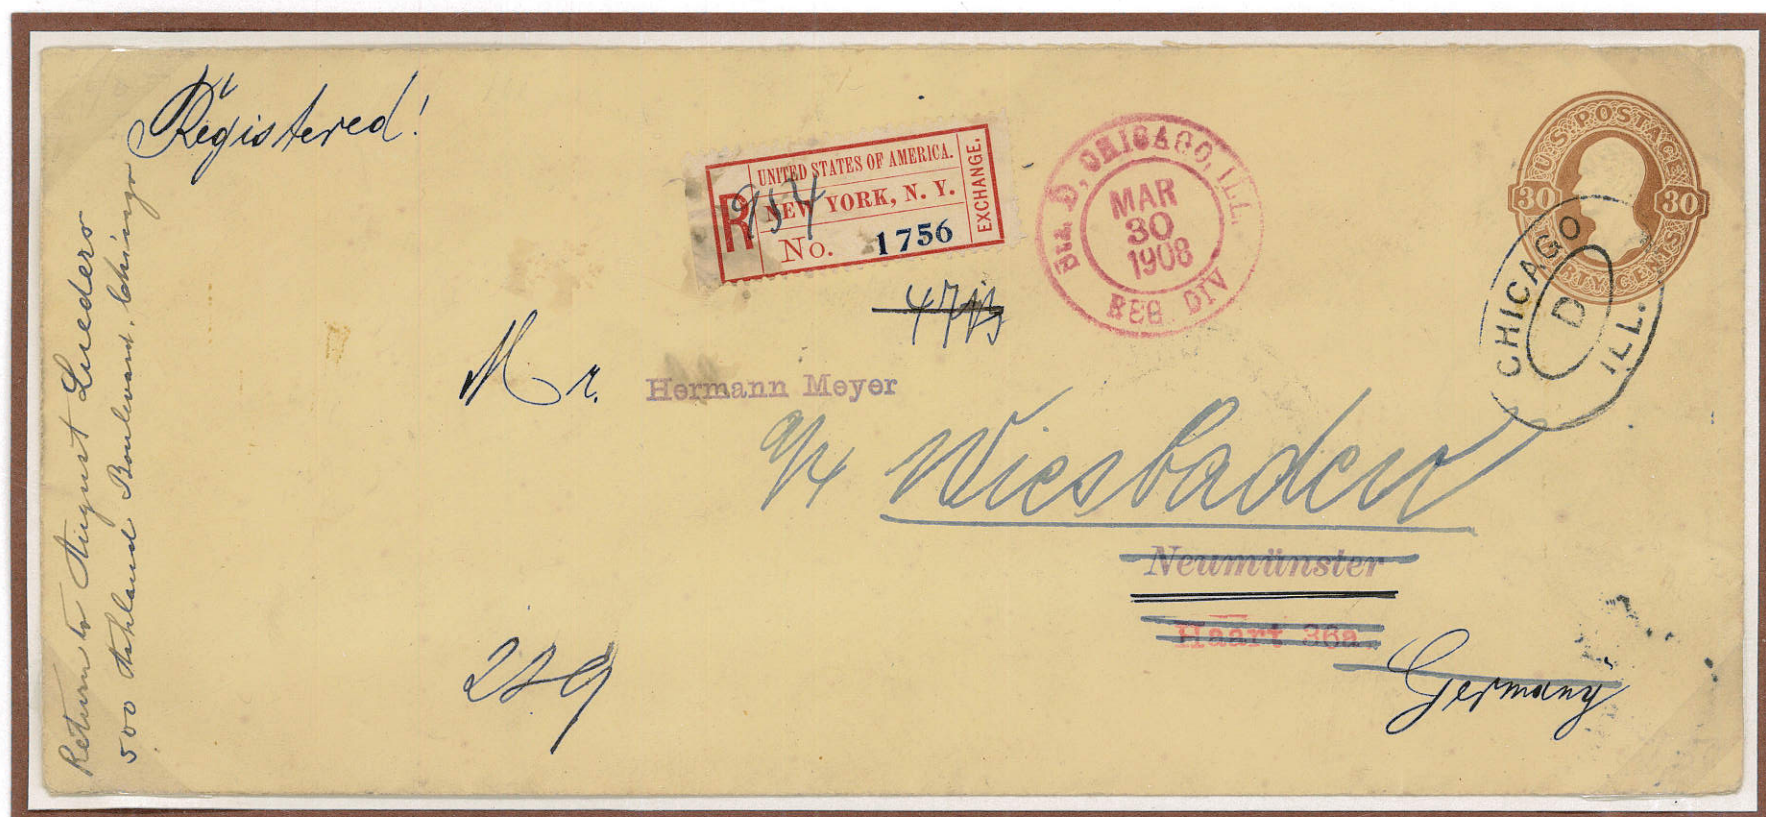 Registered!
Return to August Lueders
500 Ashland Boulevard, Chicago
UNITED STATES OF AMERICA.
R
954
NEW YORK, N. Y.
No. 1756
EXCHANGE.
D, CHICAGO, ILL.
MAR
30
1908
REG. DIV
U.S. POSTAGE
30 30
THIRTY CENTS
CHICAGO
D
ILL.
Mr. Hermann Meyer
Wiesbaden
Neumünster
Haart 36a.
Germany
229